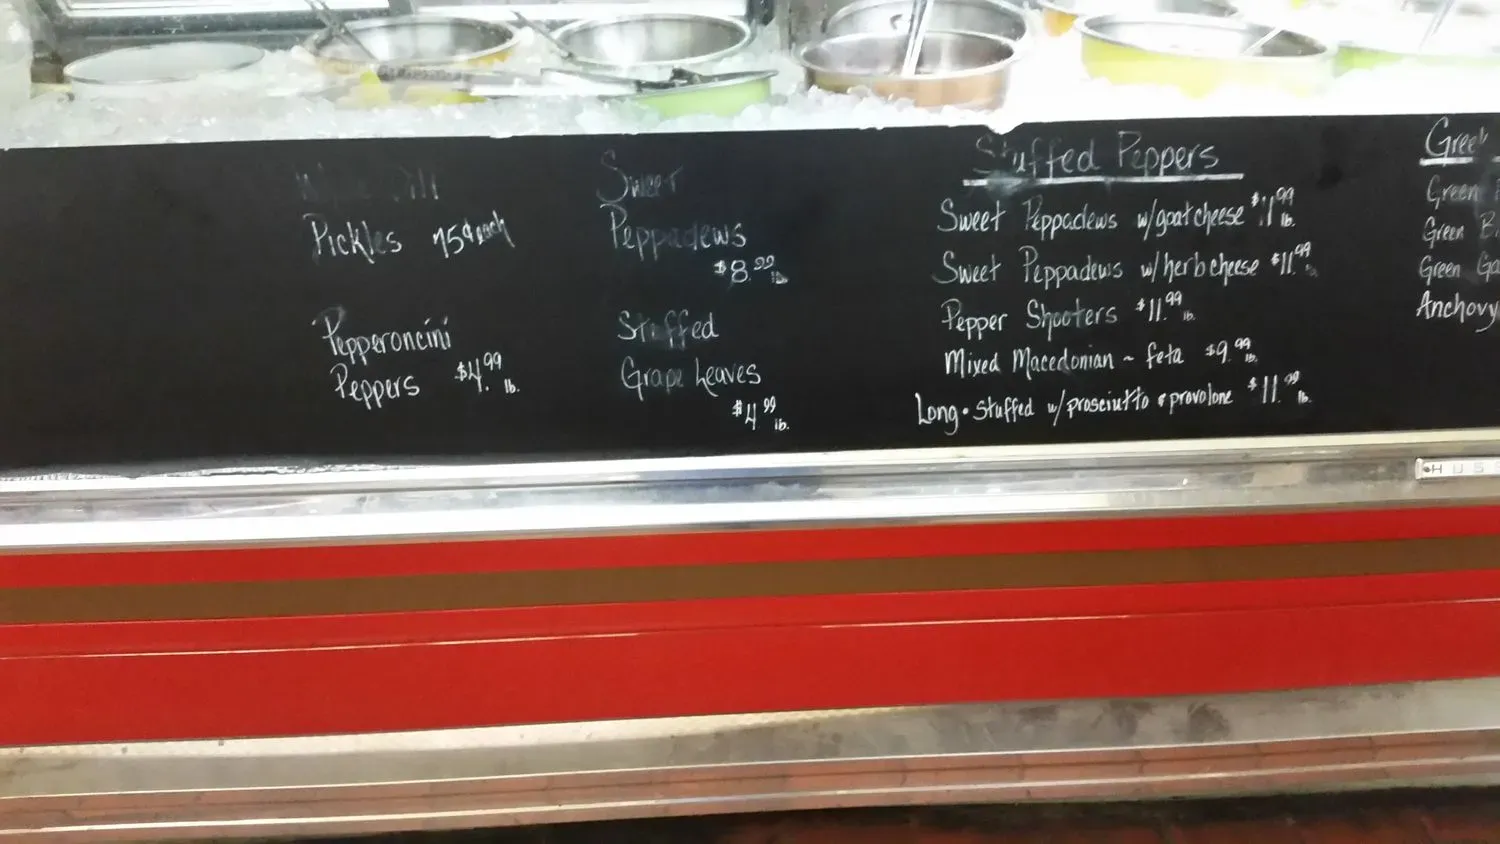 Dill
Pickles 75¢ each
Pepperoncini
Peppers $4.99 lb.
Sweet
Peppadews
$8.99 lb
Stuffed
Grape Leaves
$4.99 lb.
Stuffed Peppers
Sweet Peppadews w/goatcheese $11.99 lb.
Sweet Peppadews w/herbcheese $11.99 lb.
Pepper Shooters $11.99 lb.
Mixed Macedonian ~ feta $9.99 lb.
Long • Stuffed w/prosciutto & provolone $11.99 lb.
Green
Green
Green
Anchovy